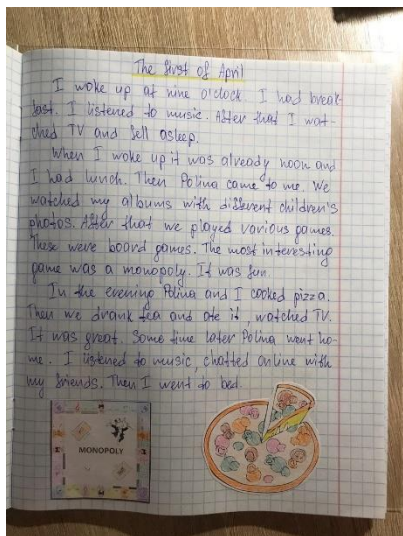 The first of April
I woke up at nine o'clock. I had break-
fast. I listened to music. After that I wat-
ched TV and fell asleep.
When I woke up it was already noon and
I had lunch. Then Polina came to me. We
watched my albums with different children's
photos. After that we played various games.
These were board games. The most interesting
game was a monopoly. It was fun.
In the evening Polina and I cooked pizza.
Then we drank tea and ate it, watched TV.
It was great. Some time later Polina went ho-
me. I listened to music, chatted online with
my friends. Then I went to bed.
MONOPOLY